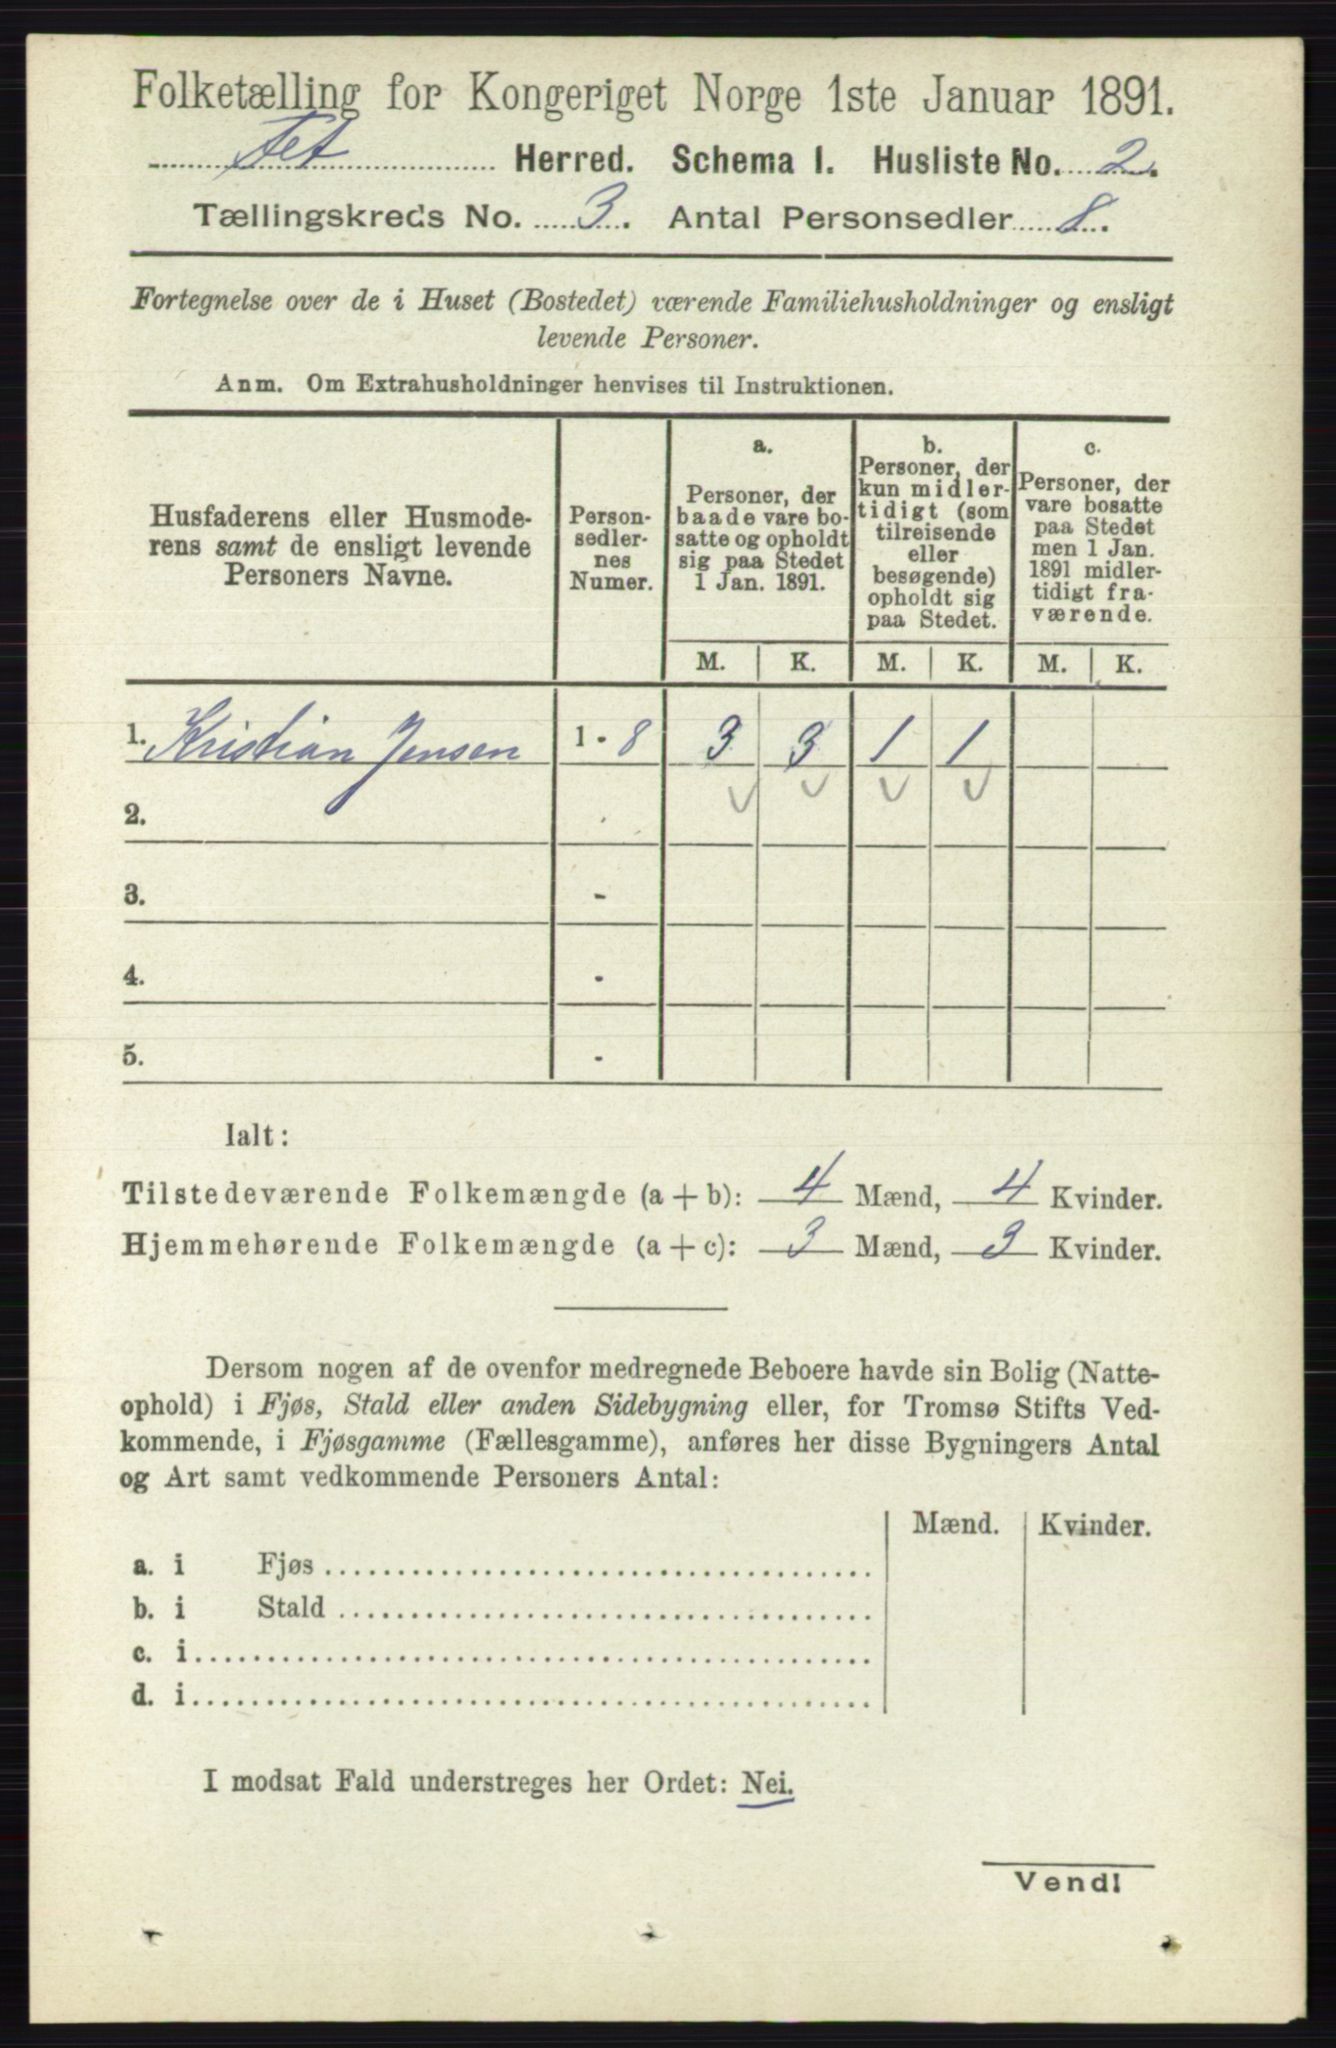 Folketælling for Kongeriget Norge 1ste Januar 1891.
Fet Herred. Schema I. Husliste No. 2.
Tællingskreds No. 3. Antal Personsedler 8.
Fortegnelse over de i Huset (Bostedet) værende Familiehusholdninger og ensligt
levende Personer.
Anm. Om Extrahusholdninger henvises til Instruktionen.
Husfaderens eller Husmode-
rens samt de ensligt levende
Personers Navne.
Person-
sedler-
nes
Numer.
a.
Personer, der
baade vare bo-
satte og opholdt
sig paa Stedet
1 Jan. 1891.
b.
Personer, der
kun midler-
tidigt (som
tilreisende
eller
besøgende)
opholdt sig
paa Stedet.
c.
Personer, der
vare bosatte
paa Stedet
men 1 Jan.
1891 midler-
tidigt fra-
værende.
M. K. M. K. M. K.
1. Kristian Jensen 1 - 8 3 3 1 1
2.
3. -
4. -
5. -
Ialt:
Tilstedeværende Folkemængde (a + b): 4 Mænd, 4 Kvinder.
Hjemmehørende Folkemængde (a + c): 3 Mænd, 3 Kvinder.
Dersom nogen af de ovenfor medregnede Beboere havde sin Bolig (Natte-
ophold) i Fjøs, Stald eller anden Sidebygning eller, for Tromsø Stifts Ved-
kommende, i Fjøsgamme (Fællesgamme), anføres her disse Bygningers Antal
og Art samt vedkommende Personers Antal:
Mænd. Kvinder.
a. i Fjøs
b. i Stald
c. i
d. i
I modsat Fald understreges her Ordet: Nei.
Vend!